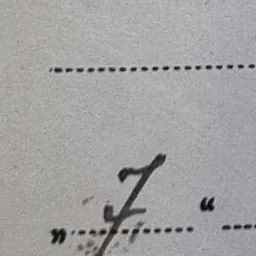 „ 7 “